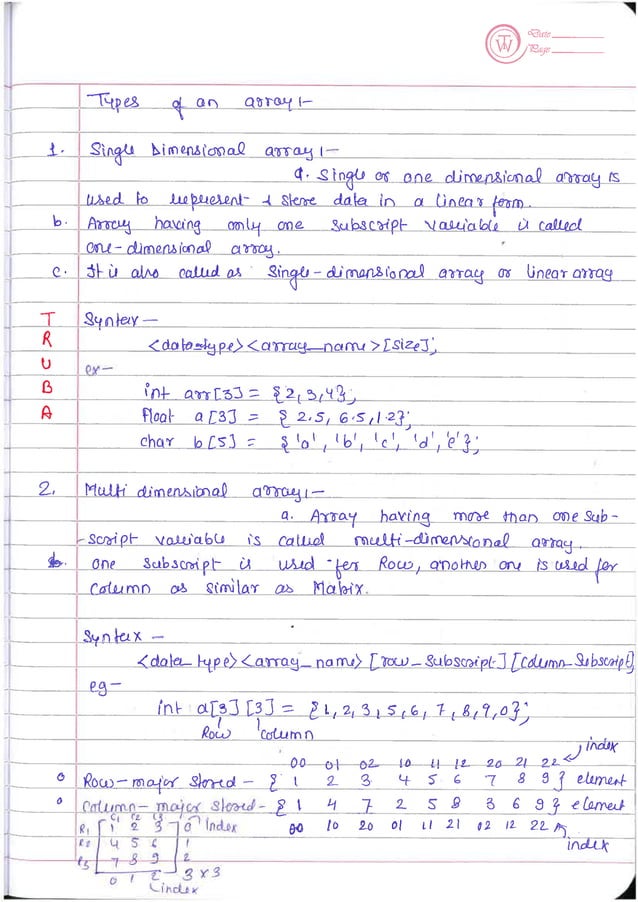 Date
Page
TW
Types of an array :-
1. Single Dimensional array :-
a. Single or one dimensional array is
used to represent & store data in a linear form.
b. Array having only one subscript variable is called
one-dimensional array.
c. It is also called as Single-dimensional array or linear array
T
R
U
B
A
Syntax -
<data-type><array_name>[size];
ex -
int arr[3] = {2,3,4};
float a[3] = {2.5, 6.5, 1.2};
char b[5] = {'a', 'b', 'c', 'd', 'e'};
2. Multi dimensional array :-
a. Array having more than one sub-
-script variable is called multi-dimensional array.
b. one subscript is used for Row, another one is used for
column as similar as Matrix.
Syntax -
<data_type><array_name>[row_subscript][column_subscript]
eg -
int a[3][3] = {1,2,3,5,6,7,8,9,0};
Row column
00 01 02 10 11 12 20 21 22 index
Row-major stored - {1 2 3 4 5 6 7 8 9} element
column-major stored - {1 4 7 2 5 8 3 6 9} element
00 10 20 01 11 21 02 12 22
index
C1 C2 C3
R1 1 2 3 0 index
R2 4 5 6 1
R3 7 8 9 2
0 1 2 3 x 3
index